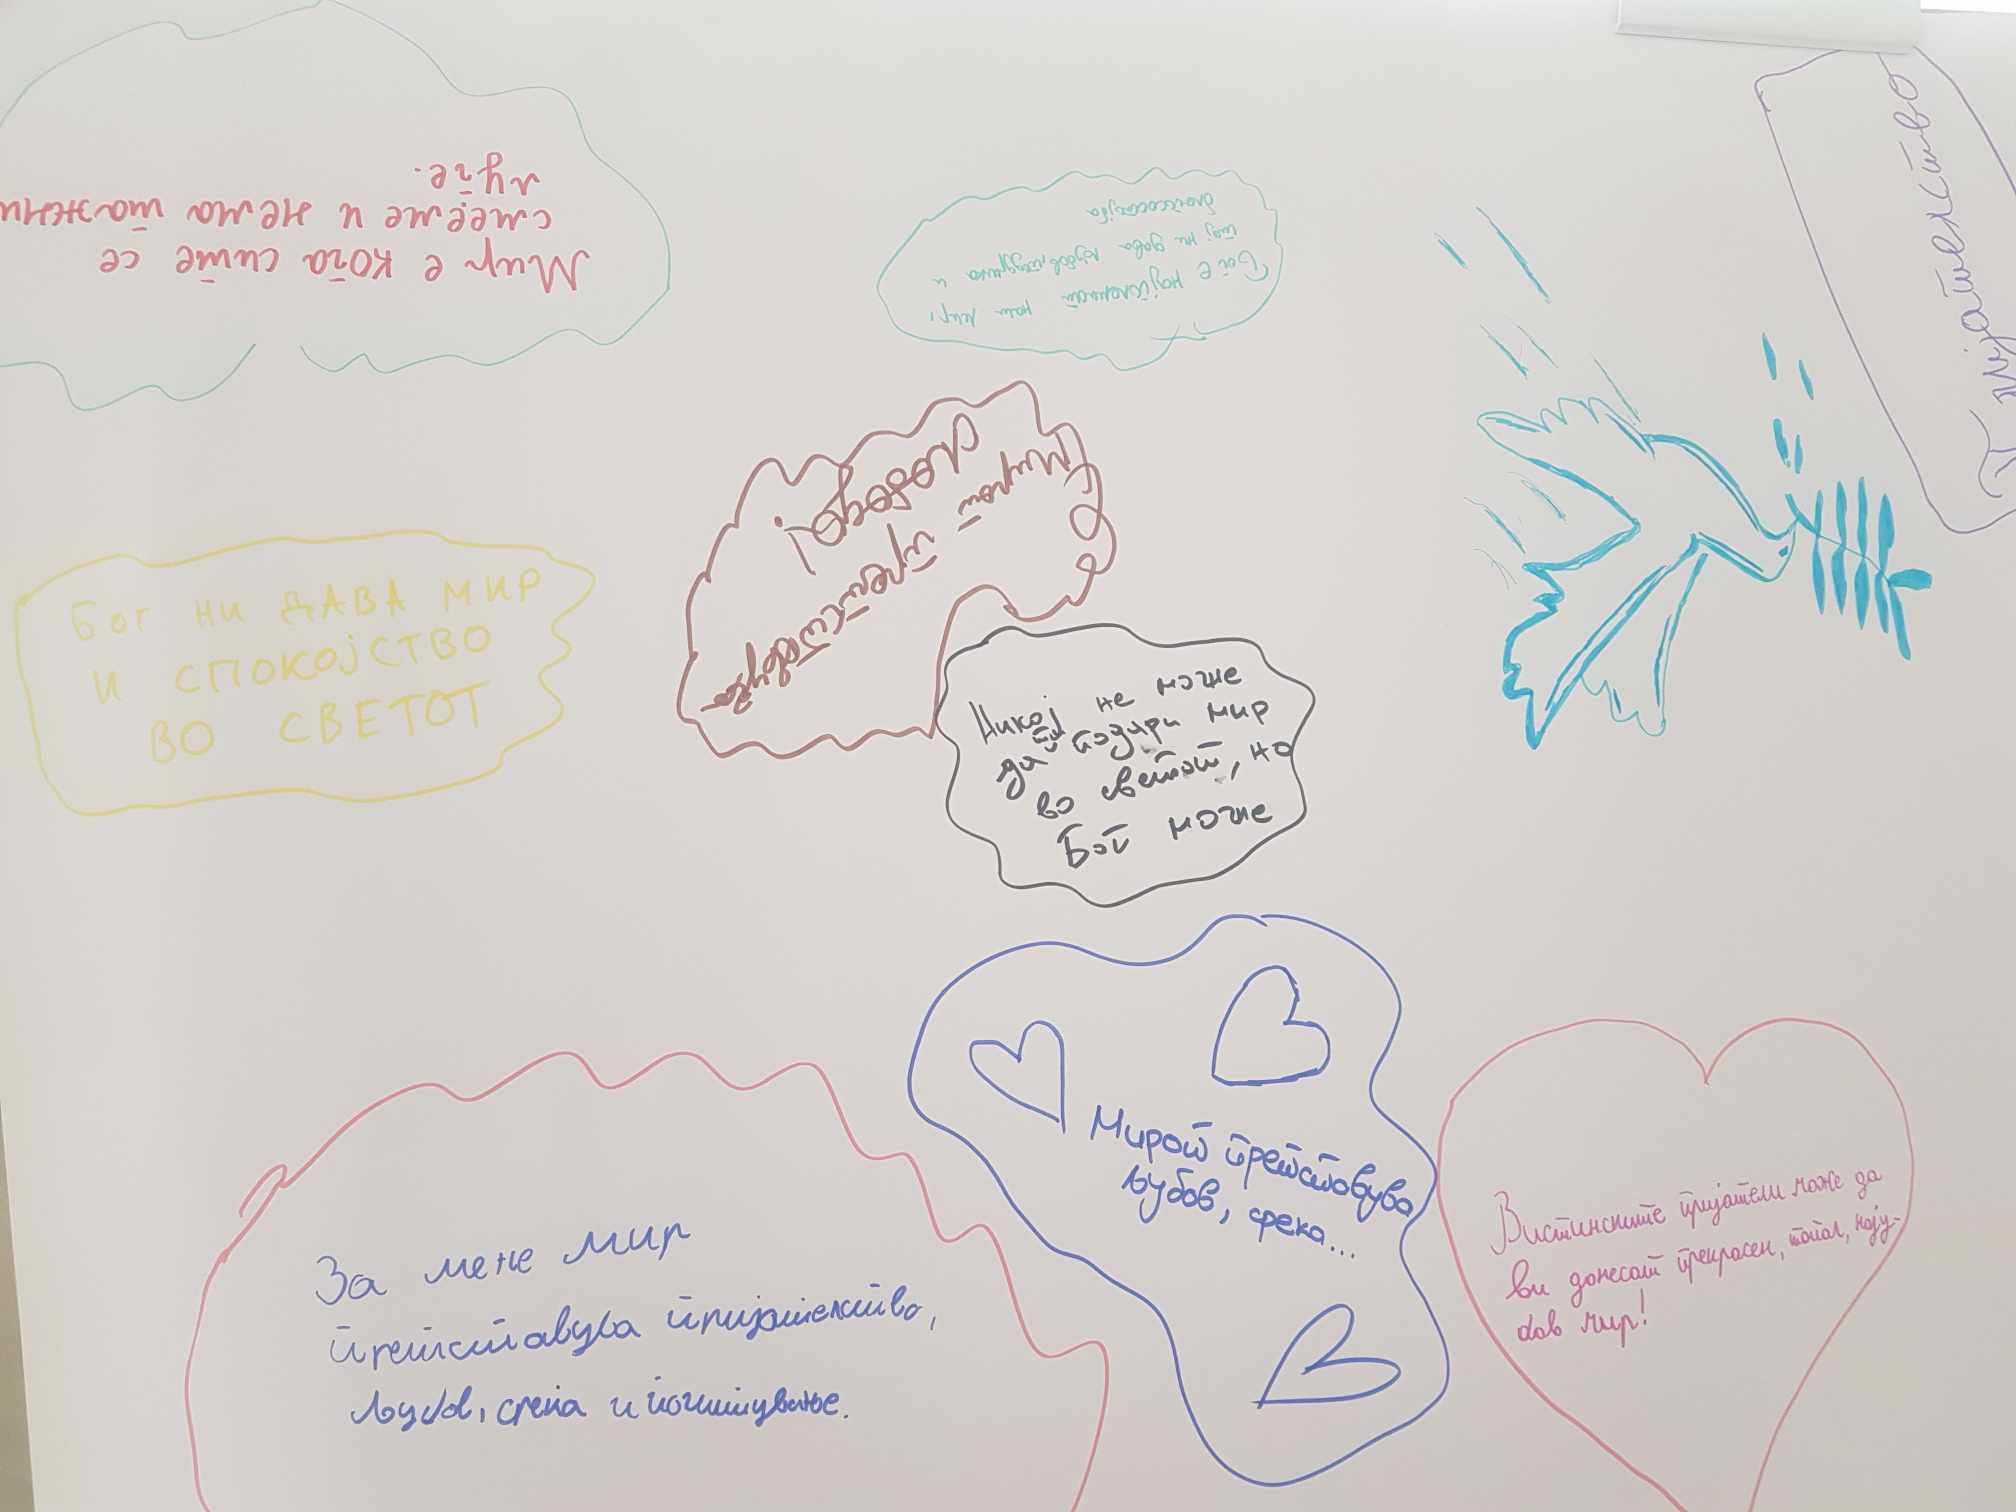 Мир е кога сите се
смееме и нема тажни
луѓе.
Бог е најголемиот наш мир,
тој ни дава љубов, подршка и
Пријателство
Мирот претставува
слобода!
Бог ни ДАВА МИР
И СПОКОЈСТВО
ВО СВЕТОТ
Никој не може
да подари мир
во светот, но
Бог може
Мирот претставува
љубов, среќа...
За мене мир
претставува пријателство,
љубов, среќа и почитување.
Вистинските пријатели може да
ви донесат прекрасен, топол, нају-
бав мир!